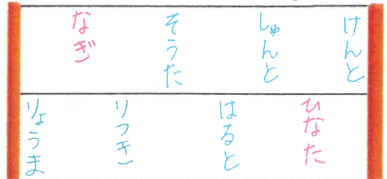 けんと
しゅんと
そうた
なぎ
ひなた
はると
りつき
りょうま